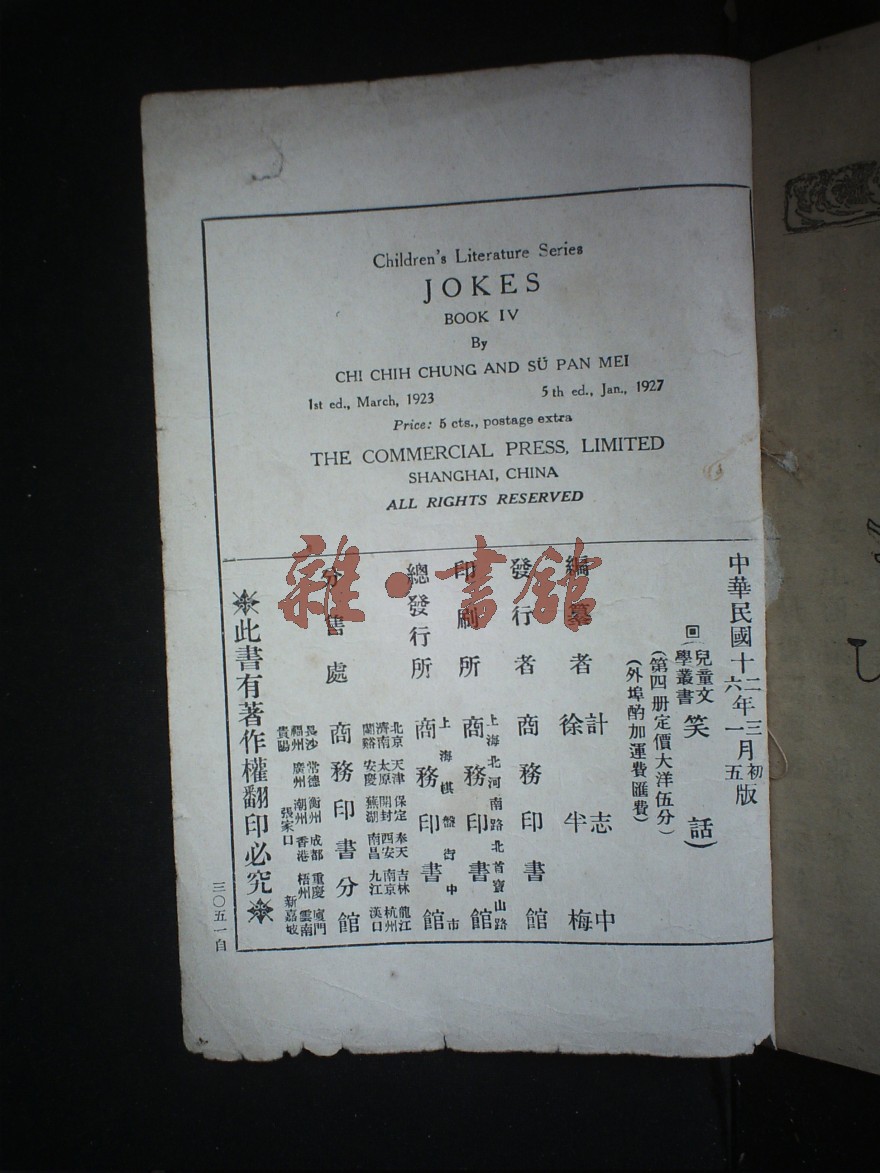 Children's Literature Series
JOKES
BOOK IV
By
CHI CHIH CHUNG AND SÜ PAN MEI
1st ed., March, 1923 5th ed., Jan., 1927
Price: 5 cts., postage extra
THE COMMERCIAL PRESS, LIMITED
SHANGHAI, CHINA
ALL RIGHTS RESERVED
雜·書館
中華民國十二年三月初版
六年一月五
回兒童文學叢書笑話)
(第四册定價大洋伍分)
(外埠酌加運費匯費)
編纂者 計志中
徐半梅
發行者 商務印書館
印刷所 上海北河南路北首寶山路
商務印書館
總發行所 上海棋盤街中市
商務印書館
分售處 商務印書分館
北京 天津 保定 奉天 吉林 龍江
濟南 太原 開封 西安 南京 杭州
蘭谿 安慶 蕪湖 南昌 九江 漢口
長沙 常德 衡州 成都 重慶 廈門
福州 廣州 潮州 香港 梧州 雲南
貴陽 張家口 新嘉坡
※此書有著作權翻印必究※
三〇五一自